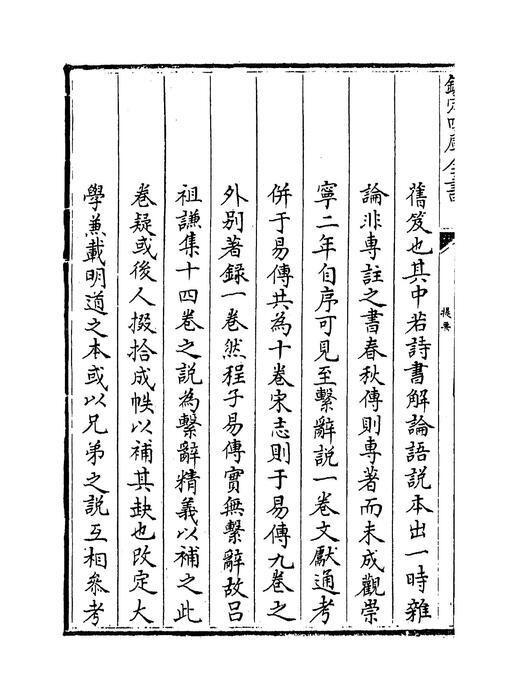 欽定四庫全書
提要
舊笈也其中若詩書解論語說本出一時雜
論非專註之書春秋傳則專著而未成觀崇
寧二年自序可見至繫辭說一卷文獻通考
併于易傳共為十卷宋志則于易傳九卷之
外別著録一卷然程子易傳實無繫辭故吕
祖謙集十四卷之說為繫辭精義以補之此
卷疑或後人掇拾成帙以補其缺也改定大
學兼載明道之本或以兄弟之說互相叅考